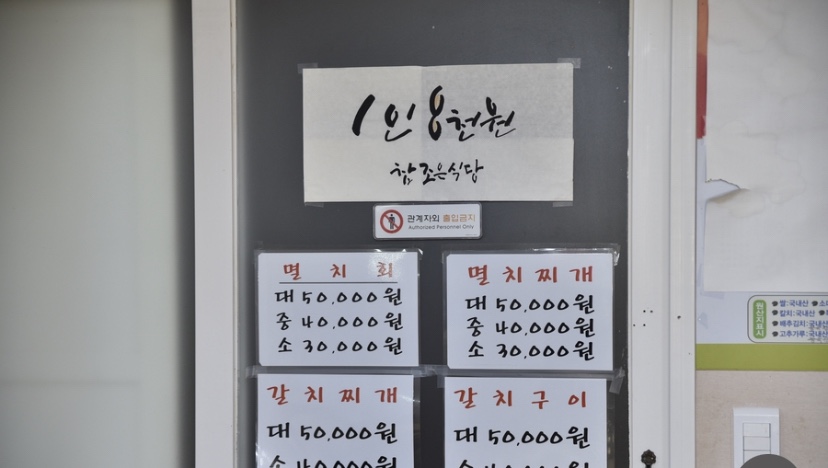 1인 8천원
참 조은식당
관계자외 출입금지
Authorized Personnel Only
멸치회
대 50,000원
중 40,000원
소 30,000원
멸치찌개
대 50,000원
중 40,000원
소 30,000원
갈치찌개
대 50,000원
갈치구이
대 50,000원
원산지표시
쌀:국내산
갈치:국내산
배추김치:국내산
고추가루:국내산